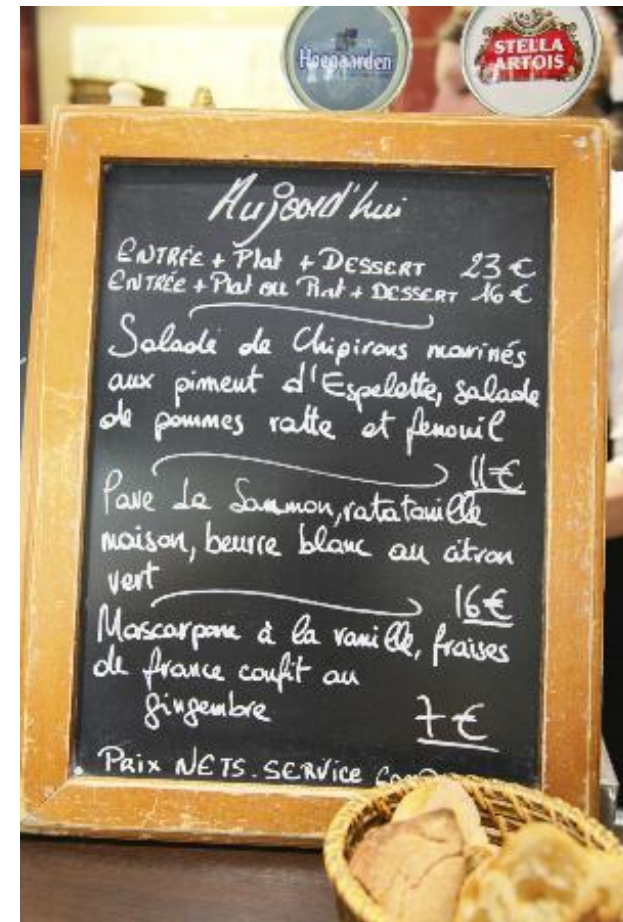 Hoegaarden
STELLA
ARTOIS
Aujourd'hui
ENTRÉE + Plat + DESSERT 23 €
ENTRÉE + Plat ou Plat + DESSERT 16 €
Salade de Chipirons marinés
aux piment d'Espelette, salade
de pommes ratte et fenouil
11 €
Pave de Saumon, ratatouille
maison, beurre blanc au citron
vert
16 €
Mascarpone à la vanille, fraises
de france confit au
gingembre
7 €
Prix NETS. SERVICE